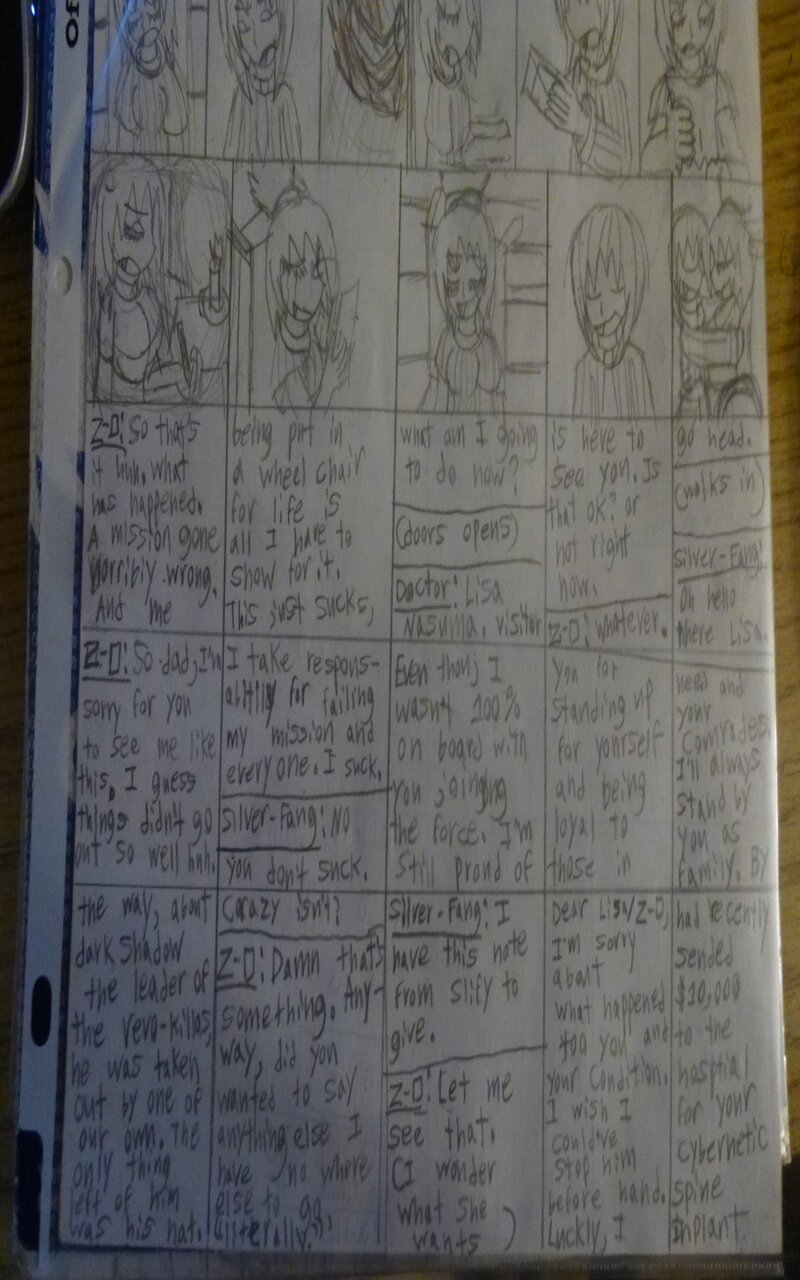 Of
Z-O: So that's
it huh. what
has happened.
A mission gone
horribly wrong.
And me
being put in
a wheel chair
for life is
all I have to
show for it.
This just sucks,
what am I going
to do now?
(doors opens)
Doctor: Lisa
Nasuma, visitor
is here to
see you. Is
that ok? or
not right
now.
Z-O: whatever.
go head.
(walks in)
Silver-Fang:
Oh hello
there Lisa.
Z-O: So dad, I'm
sorry for you
to see me like
this. I guess
things didn't go
out so well huh.
I take respons-
abitily for failing
my mission and
everyone. I suck.
Silver-Fang: No
you don't suck.
Even thou, I
wasn't 100%
on board with
you joinging
the force. I'm
still proud of
you for
standing up
for yourself
and being
loyal to
those in
need and
your
comrades.
I'll always
stand by
you as
family. By
the way, about
dark shadow
the leader of
the revo-killas,
he was taken
out by one of
our own. The
only thing
left of him
was his hat.
Crazy isn't?
Z-O: Damn that's
something. Any-
way, did you
wanted to say
anything else I
have no where
else to go
"literally."
Silver-Fang: I
have this note
from Slify to
give.
Z-O: Let me
see that.
(I wonder
what she
wants)
Dear Lisa/Z-O,
I'm sorry
about
what happened
too you and
your condition.
I wish I
could've
stop him
before hand.
Luckly, I
had recently
sended
$10,000
to the
hosptial
for your
cybernetic
spine
inplant.